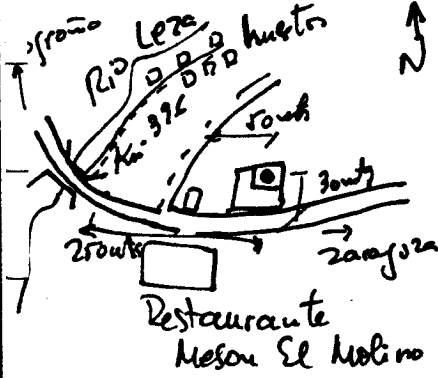 ogroño
Río Leza
huertos
N
Km. 396
50 mts
30 mts
250 mts
Zaragoza
Restaurante
Meson El Molino